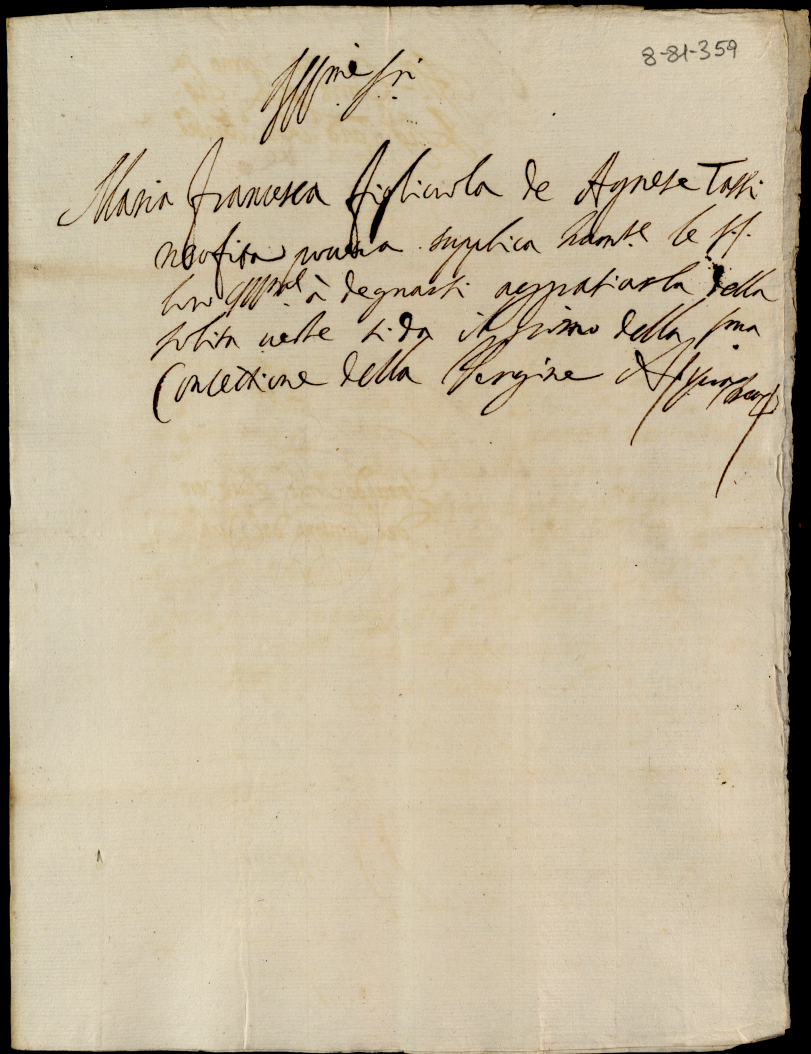 8-81-359
Ill.mi Sri
Maria Francesca figliuola de Agnese Tassi
neofita povera supplica hum.te le SS.
loro Ill.me à degnarsi aggratiarla della
solita veste si da il giorno della s.ma
Concettione della Vergine